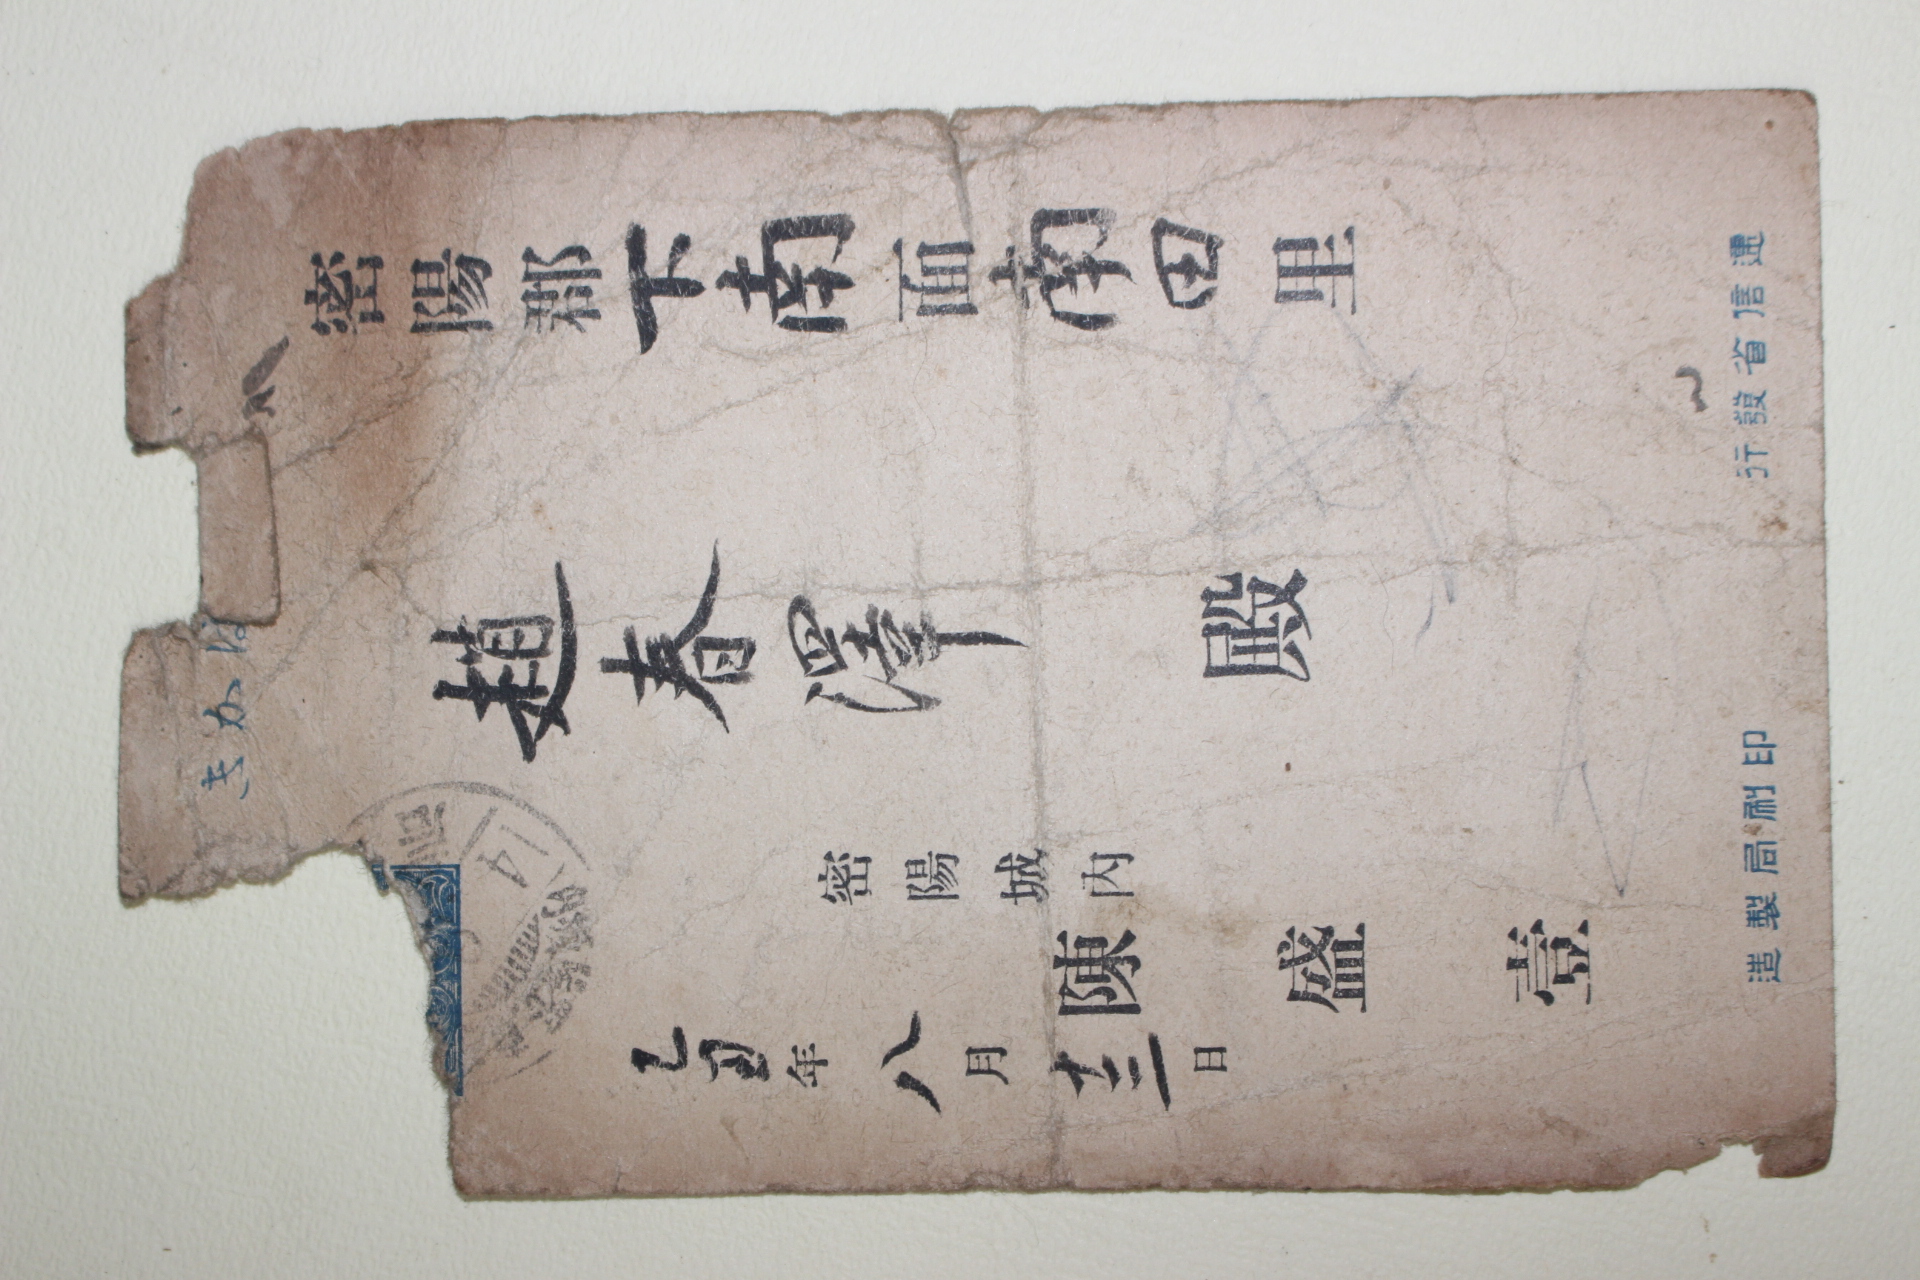 きかは
密陽郡下南面南田里
趙春澤 殿
密陽城内
陳盛壹
乙丑年八月十三日
造製局刷印
行發省信遞